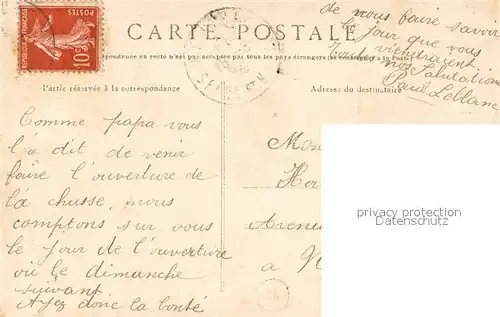 de nous faire savoir
le jour que vous
viendraient
nos Salutations
Paul Leblanc
CARTE POSTALE
RÉPUBLIQUE FRANÇAISE
10c
POSTES
La correspondance au recto n'est pas acceptée par tous les pays étrangers (Se renseigner à la Poste)
Partie réservée à la correspondance
Adresse du destinataire
Comme papa vous
l'à dit de venir
faire l'ouverture de
là chasse, nous
comptons sur vous
le jour de l'ouverture
où le dimanche
suivant
Ayez donc la bonté
Avenue
a
privacy protection
Datenschutz